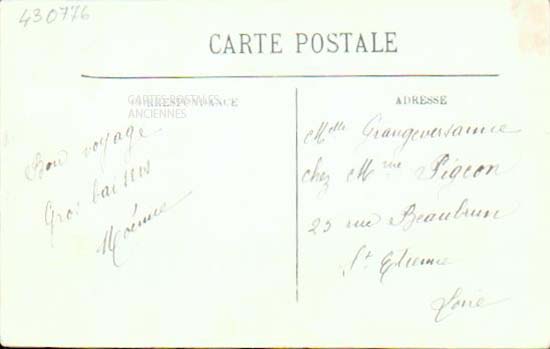 430776
CARTE POSTALE
CORRESPONDANCE
CARTES POSTALES
ANCIENNES
Bon voyage
Gros baisers
ADRESSE
Melle
chez Mme Pigeon
23 rue Beaubrun
St Etienne
Loire